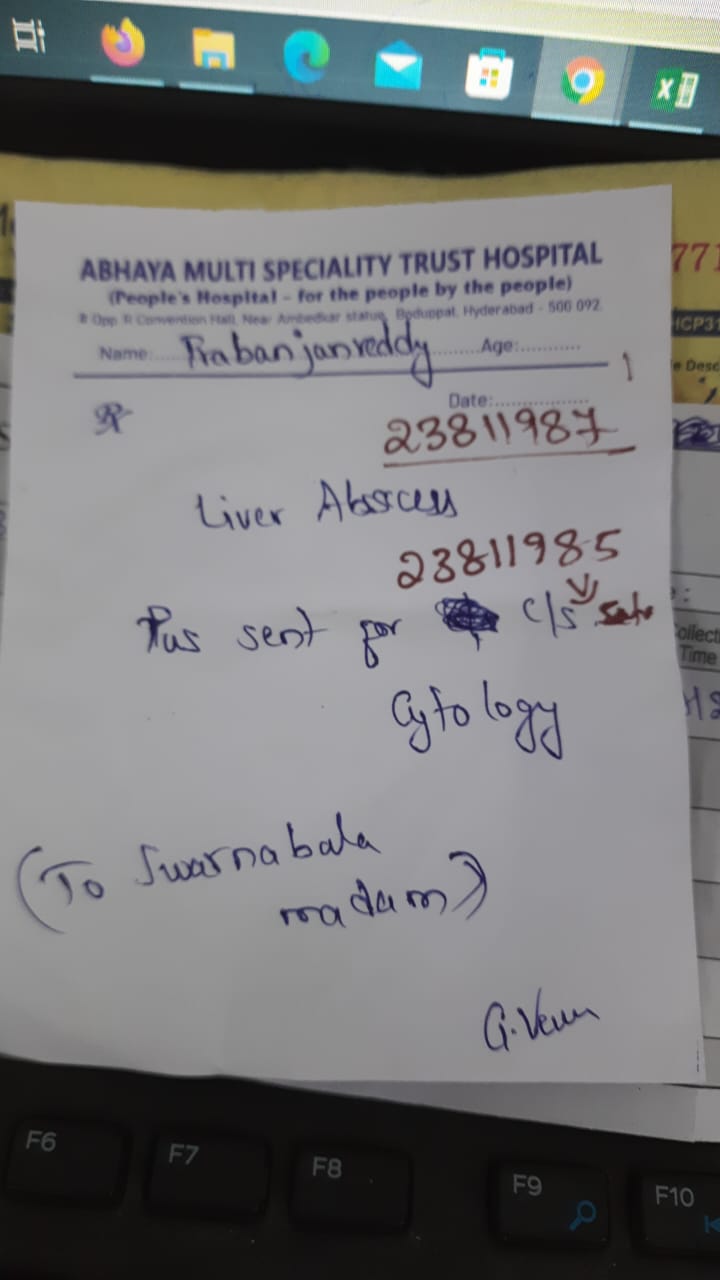 771
ABHAYA MULTI SPECIALITY TRUST HOSPITAL
(People's Hospital - for the people by the people)
# Opp. R Convention Hall, Near Ambedkar statue, Boduppal, Hyderabad - 500 092.
HCP31
Name:...... Prabanjanreddy ..........Age:............
e Desc
1
Date:.................
Rx
23811987
Liver Abscess
23811985
Pus sent for c/s
Collecti
Time
Cytology
(To Swarnabala
madam)
G.Venu
F6 F7 F8 F9 F10